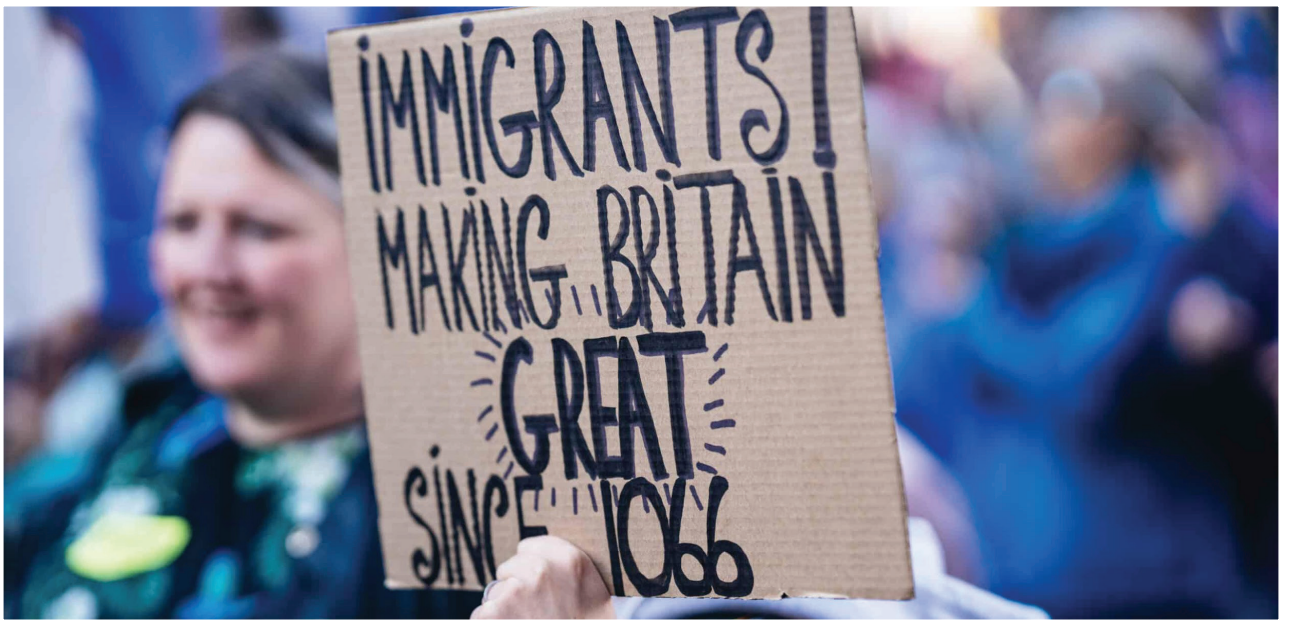 IMMIGRANTS!
MAKING BRITAIN
GREAT
SINCE 1066